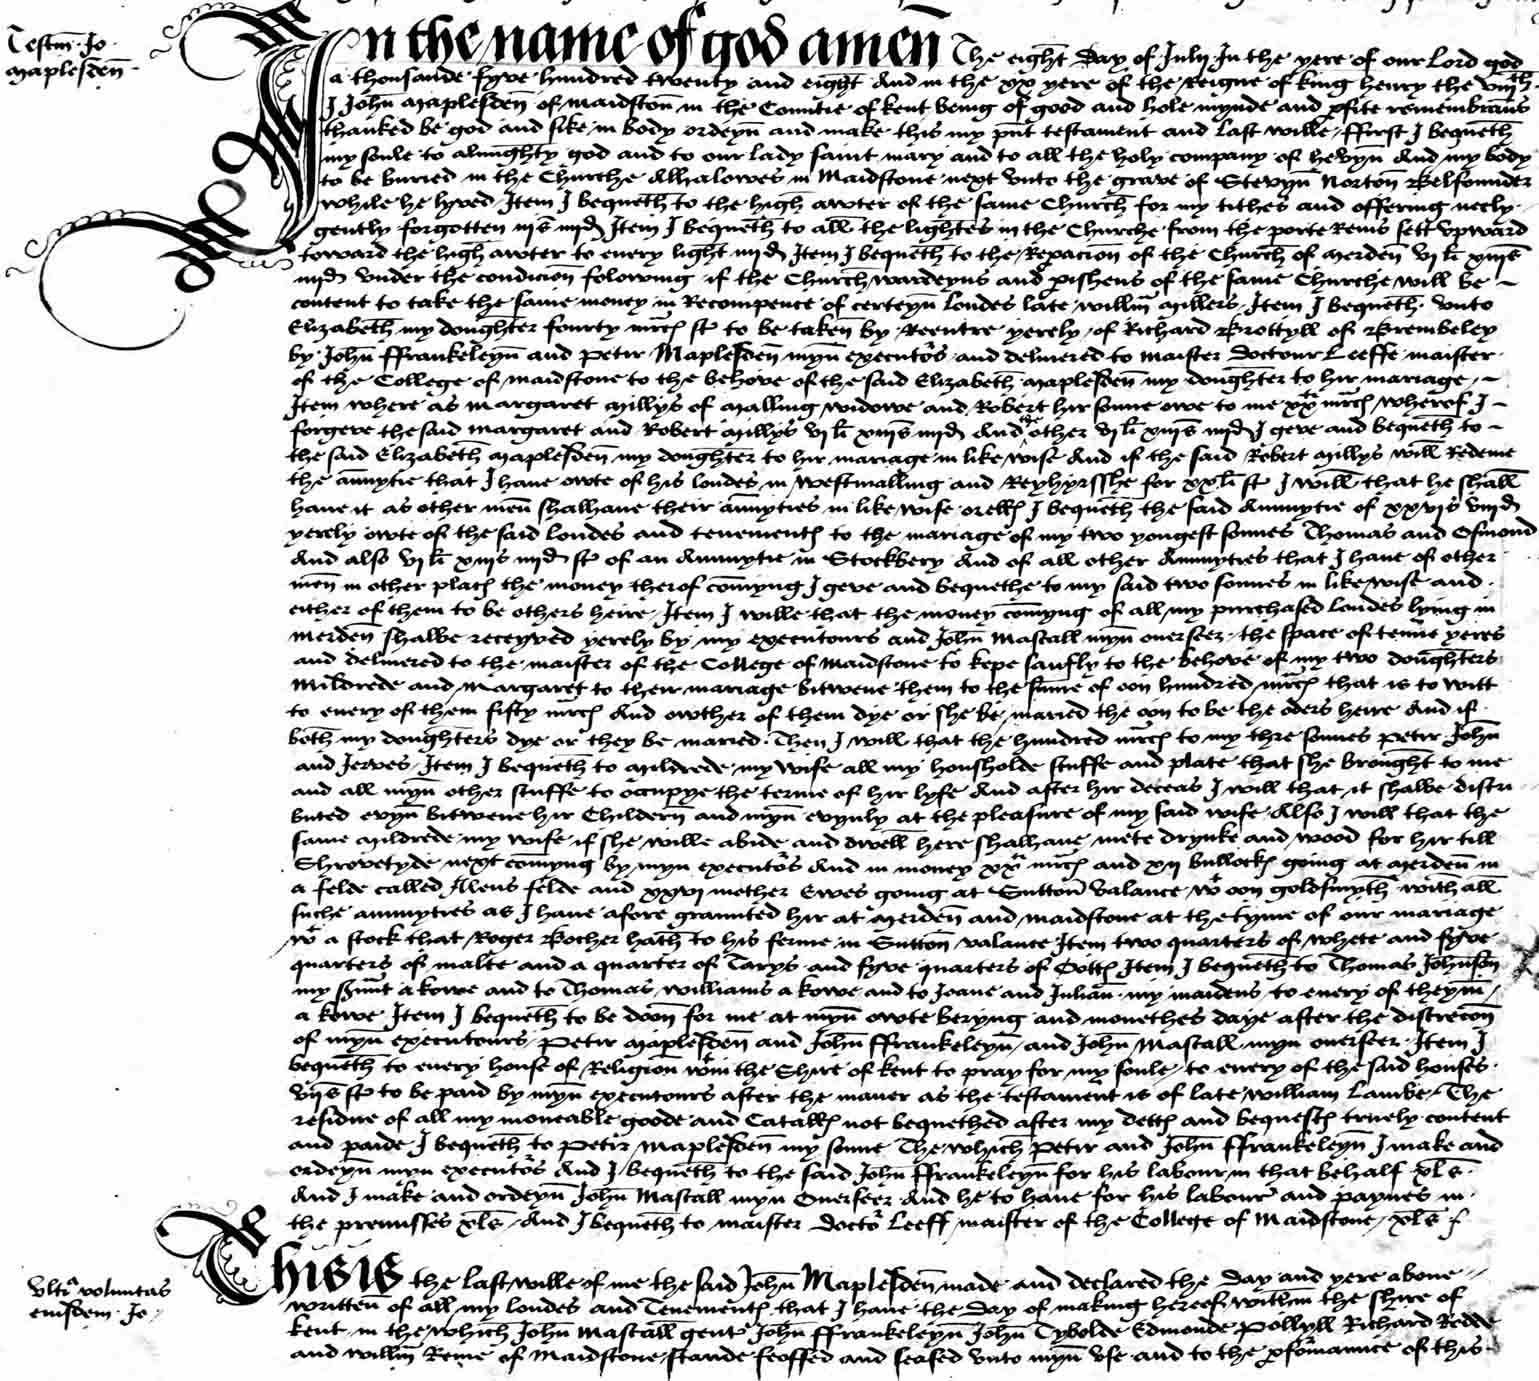 Testm Jo
Maplesden
In the name of god amen The eight Day of July In the yere of our Lord god
a thousande fyve hundred twenty and eight And in the xx yere of the Reigne of king henry the viijth
I John Maplesden of Maidston in the Countie of kent being of good and hole mynde and pfite remembrauns
thanked be god and sike in body ordeyn and make this my pnt testament and last wille ffirst I bequeth
my soule to almighty god and to our lady saint mary and to all the holy company of hevyn And my body
to be buried in the Churche Alhalowes in Maidstone next unto the grave of Stevyn Norton Belfounder
while he lyved Item I bequeth to the high awter of the same Church for my tithes and offering necly
gently forgotten iijs iiijd Item I bequeth to all the lightes in the Churche from the porte Reus sett upward
toward the high awter to every light iiijd Item I bequeth to the Repacion of the Church of Merden vi li xiijs
iiijd under the condicion folowing if the Church wardeyns and pishens of the same Churche will be
content to take the same money in Recompence of certeyn londes late willm Millers Item I bequeth unto
Elizabeth my doughter fourty mrcs st to be taken by Reentre yerely of Richard Brottyll of Brembeley
by John ffrankeleyn and Petir Maplesden myn executors and delivered to maister doctour Leeffe maister
of the College of maidstone to the behove of the said Elizabeth Maplesden my doughter to hir mariage
Item where as Margaret Millys of Malling widowe and Robert hir sonne owe to me xxti mrcs wherof I
forgeve the said margaret and Robert Millys vi li xiijs iiijd And the other vi li xiijs iiijd I geve and bequeth to
the said Elizabeth Maplesden my doughter to hir mariage in like wise And if the said Robert Millys will Redeme
the annytie that I have owte of his londes in westmalling and Reyhyrsshe for xx li st I will that he shall
have it as other men shalhave their annyties in like wise or ells I bequeth the said Annuytie of xxvis viijd
yerely owte of the said londes and tenements to the mariage of my two yongest sonnes Thomas and Osmond
And also vi li xiijs iiijd st of an Annuytie in Stockbery And of all other Annuyties that I have of other
men in other places the money therof comyng I geve and bequethe to my said two sonnes in like wise and
either of them to be others heire Item I wille that the money comyng of all my purchased londes lying in
Merden shalbe receyved yerely by my executours and John Mascall myn overseer the space of tenne yeres
and delivered to the maister of the College of Maidstone to kepe saufly to the behove of my two doughters
Mildrede and Margaret to their mariage bitwene them to the sume of oon hundred mrcs that is to witt
to every of them fifty mrcs And owther of them dye or she be maried the oon to be the oders heire And if
both my doughters dye or they be maried Then I will that the hundred mrcs to my thre sonnes Petir John
and Jerves Item I bequeth to Mildrede my wife all my housholde stuffe and plate that she brought to me
and all myn other stuffe to occupye the terme of hir lyfe And after hir deceas I will that it shalbe distri
buted evyn bitwene hir Childern and myn evynly at the pleasure of my said wife Also I will that the
same Mildrede my wife if she wille abide and dwell here shalhave mete drynke and wood for hir till
Shrovetyde next comyng by myn executors And in money xxti mrcs and xij bullocks going at Merden in
a felde called Alens felde and xxvi mother Ewes going at Sutton valance wt oon goldsmyth with all
suche annuyties as I have afore graunted hir at Merden and Maidstone at the tyme of our mariage
wt a stock that Roger Bocher hath to his ferme in Sutton valance Item two quarters of whete and fyve
quarters of malte and a quarter of Tarys and fyve quarters of Oots Item I bequeth to Thomas Johnson
my svunt a kowe and to Thomas williams a kowe and to Joane and Julian my maidens to every of theym
a kowe Item I bequeth to be doon for me at myn owte berying and monethes daye after the discrecon
of myn executours Petir Maplesden and John ffrankeleyn and John Mascall myn overseer Item I
bequeth to every house of Religion wtin the Shire of kent to pray for my soule to every of the said houses
vijs st to be paid by myn executours after the maner as the testament is of late william Lambe The
residue of all my moveable goode and Catalls not bequethed after my detts and bequests truely content
and paide I bequeth to Petir Maplesden my sonne The which Petir and John ffrankeleyn I make and
ordeyn myn executors And I bequeth to the said John ffrankeleyn for his labour in that behalf xls
And I make and ordeyn John Mascall myn Overseer And he to have for his labour and paynes in
the premisses xls And I bequeth to maister doctor Leeff maister of the College of Maidstone xls
Ulti voluntas
eiusdem Jo
This is the last wille of me the said John Maplesden made and declared the day and yere above
written of all my londes and Tenements that I have the day of making hereof within the shire of
kent in the which John Mascall gent John ffrankeleyn John Tybolde Edmonde Pollyll Richard Redde
and willm Reme of Maidstone stande feoffed and seased unto myn use and to the pfomance of this